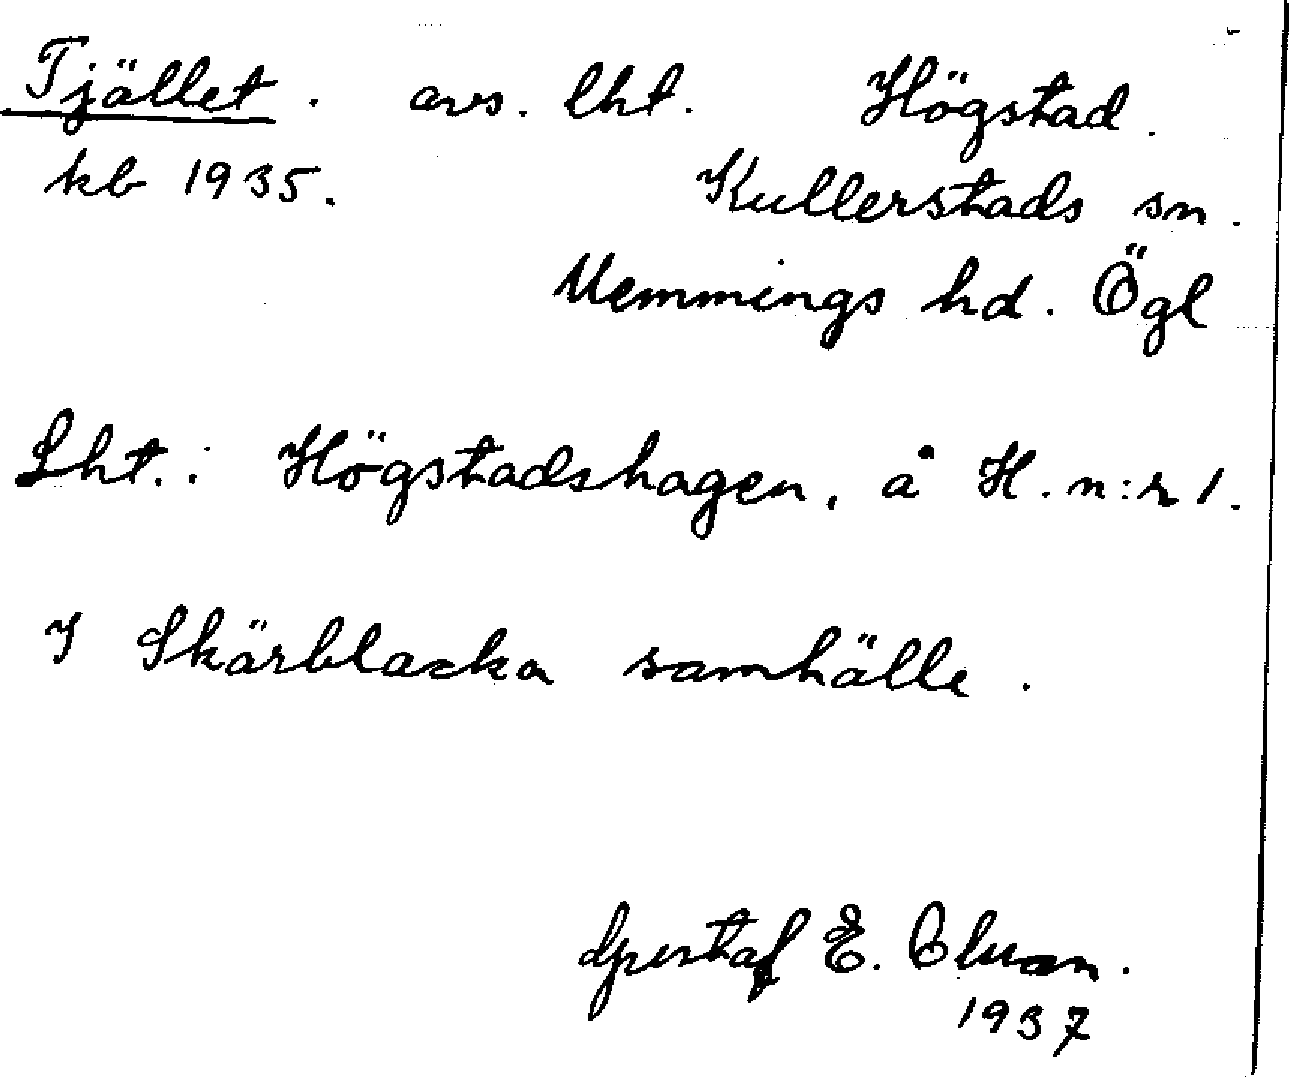 Tjället. avs. lht. Högstad.
kb 1935. Kullerstads sn.
Memmings hd. Ögl
Lht.: Högstadshagen, å H. n:r 1.
I Skärblacka samhälle.
Gustaf E.
1937